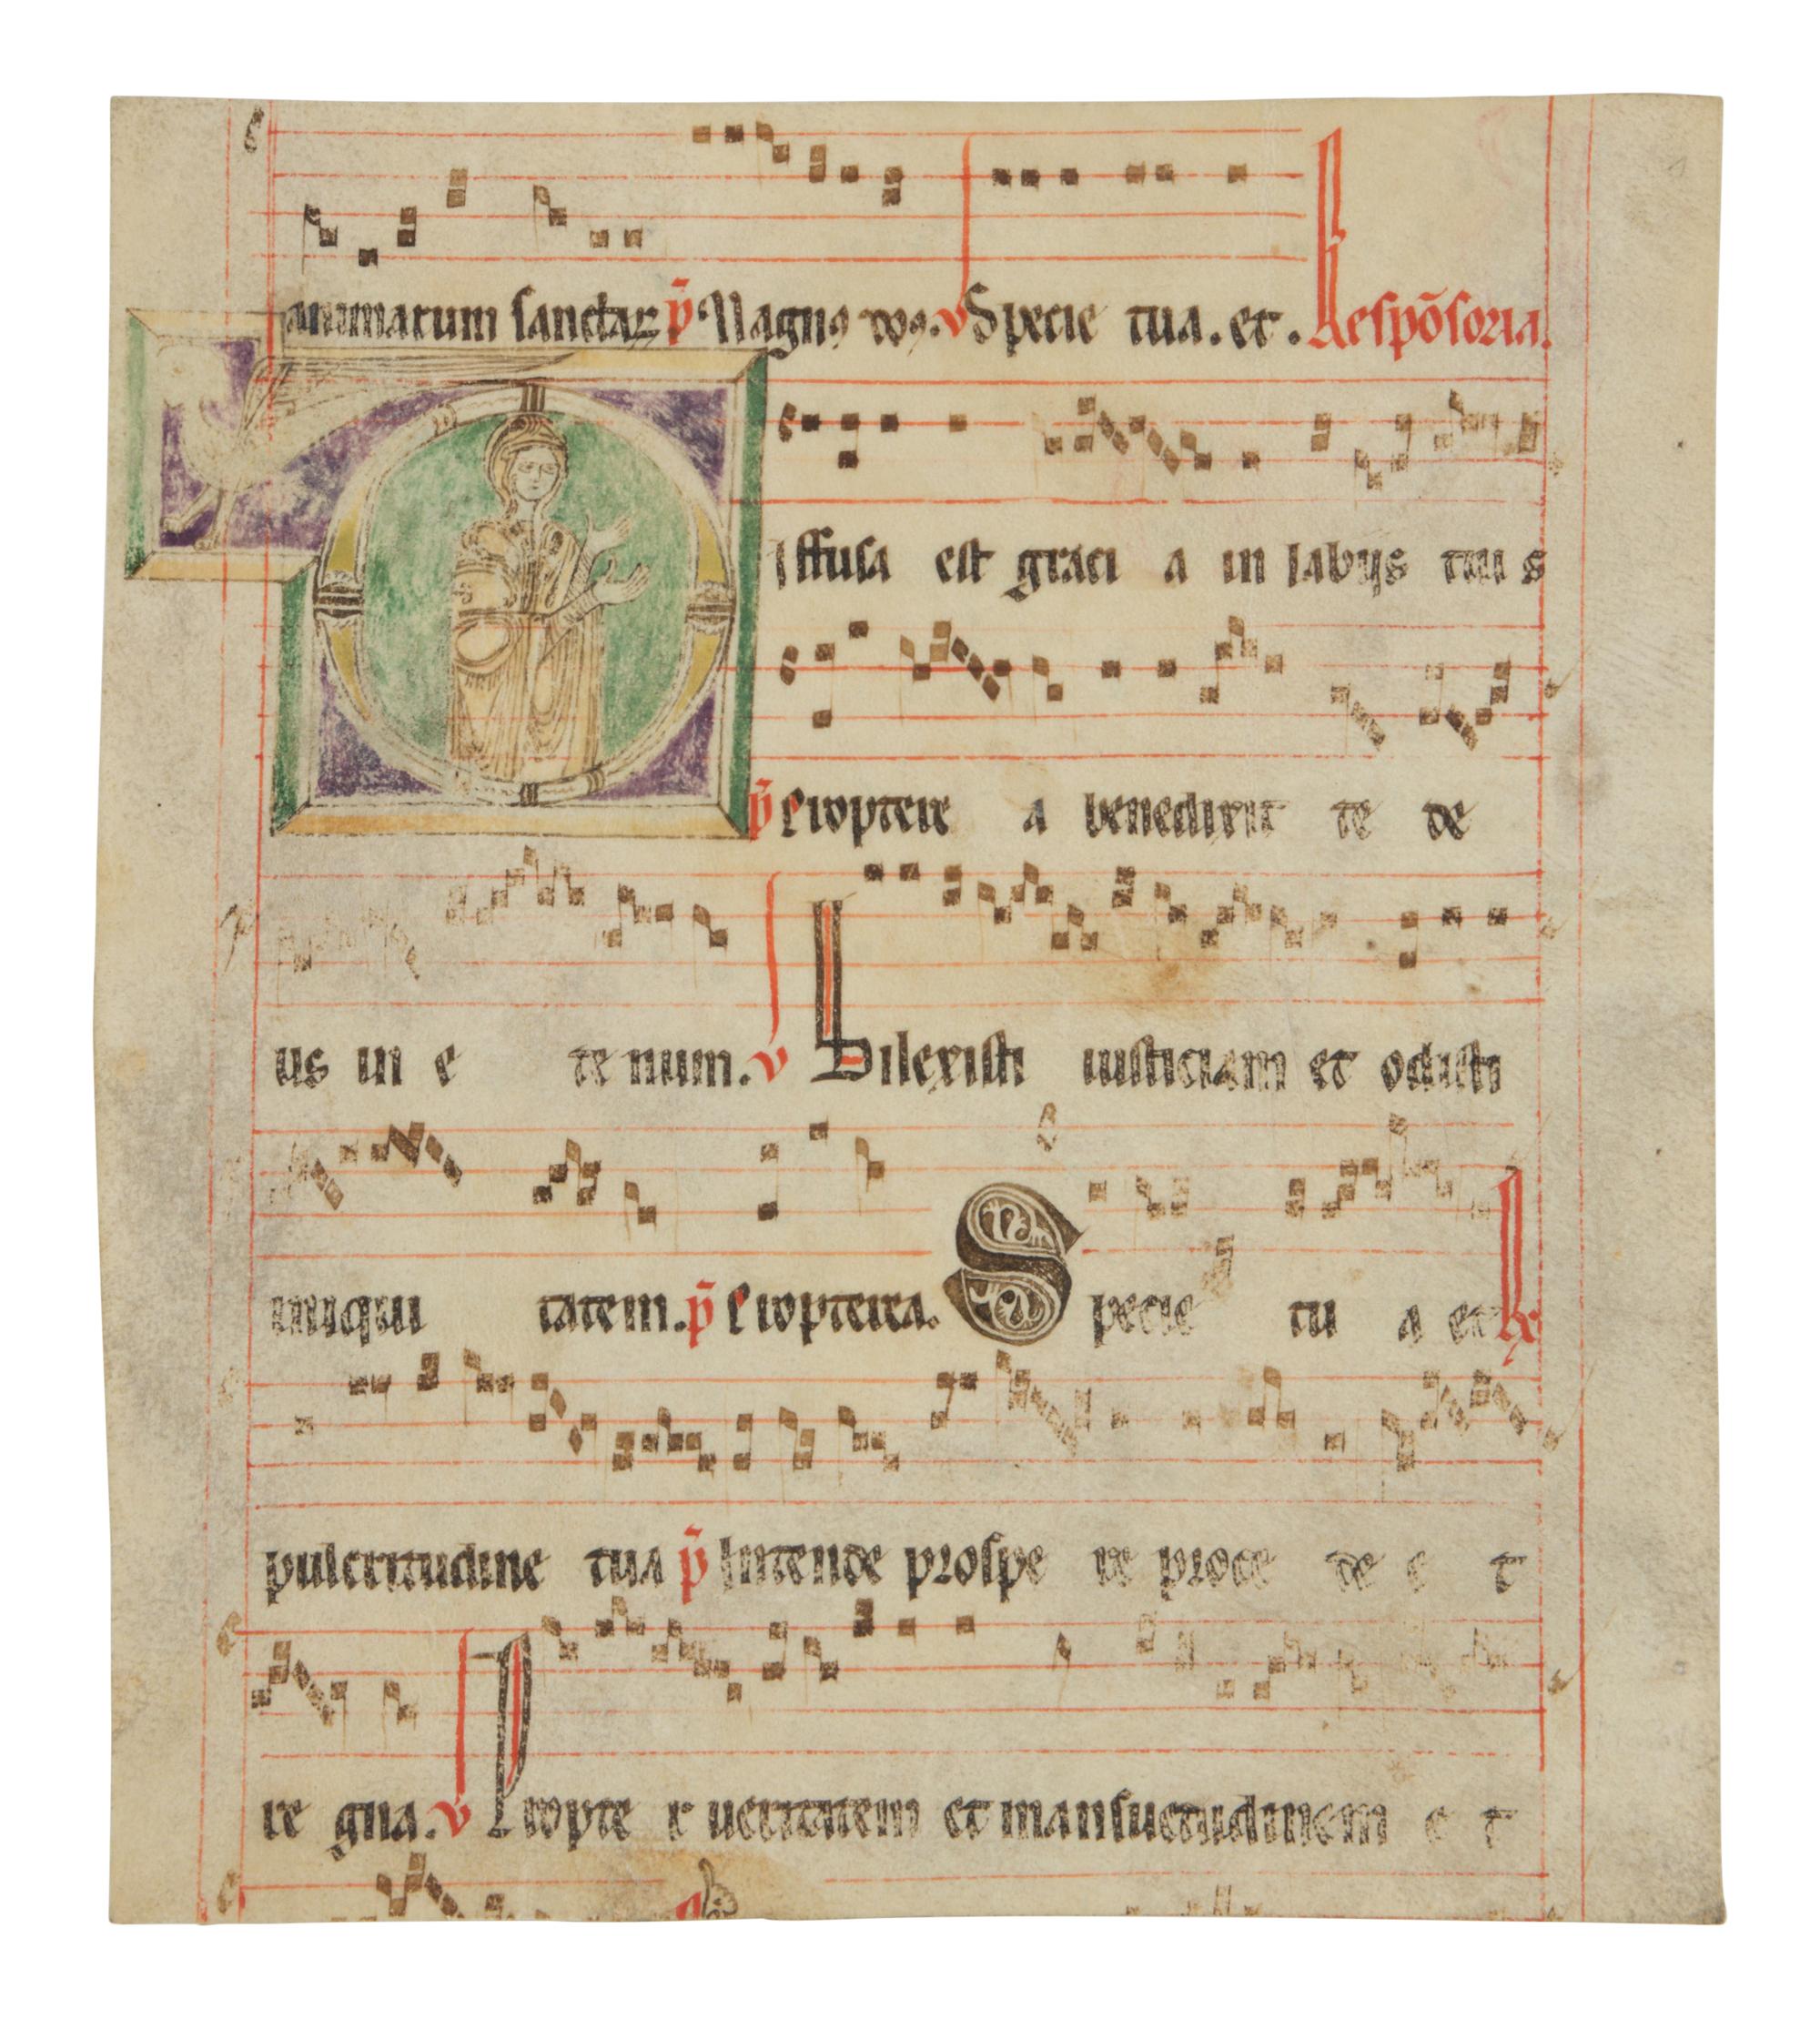 animarum sanctaꝝ p̄ Magnꝰ dnꝰ. v Specie tua. et. Respōsoria.
Diffusa est graci a in labijs tuis
p̄ Proptere a benedixit te de
us in e te num. v Dilexisti iusticiam et odisti
iniqui tatem. p̄ Propterea. Specie tu a et R
pulcritudine tua p̄ Intende prospe re proce de e t
re gna. v Propte r ueritatem et mansuetudinem e t